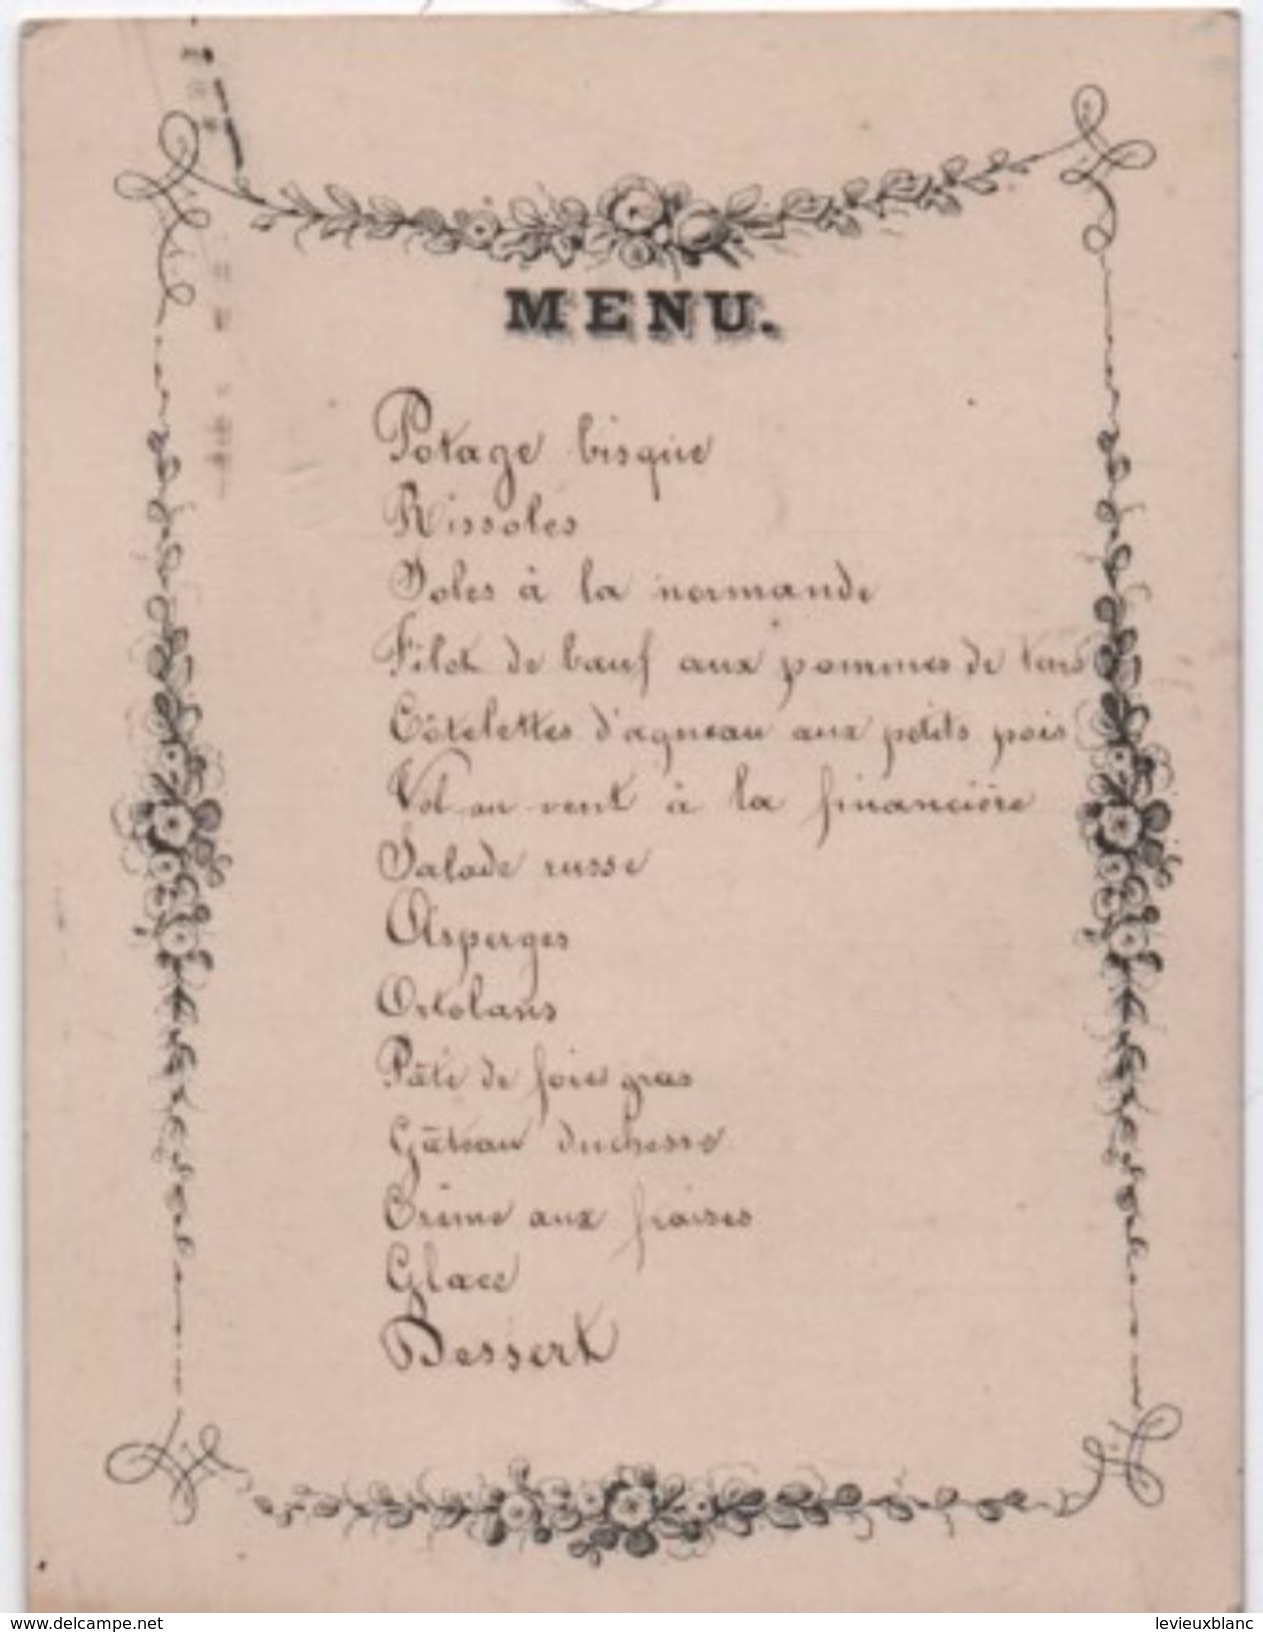 MENU.
Potage bisque
Rissoles
Soles à la normande
Filet de bœuf aux pommes de terre
Côtelettes d'agneau aux petits pois
Vol-au-vent à la financière
Salade russe
Asperges
Ortolans
Pâté de foie gras
Gâteau duchesse
Crème aux fraises
Glace
Dessert
www.delcampe.net
levieuxblanc